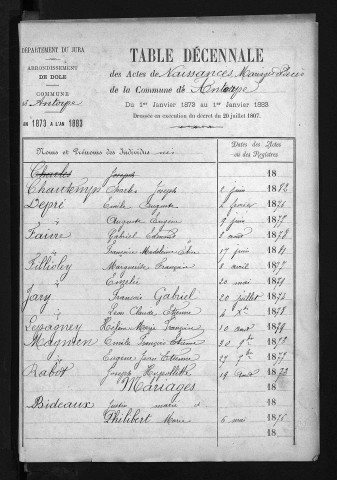 DÉPARTEMENT DU JURA
ARRONDISSEMENT
DE DOLE
COMMUNE
d'Antorpe
DE 1873 A L'AN 1883
TABLE DÉCENNALE
des Actes de Naissances Mariages Décès
de la Commune de Antorpe
Du 1er Janvier 1873 au 1er Janvier 1883
Dressée en exécution du décret du 20 juillet 1807.
Noms et Prénoms des Individus nés
Dates des Actes
ou des Registres
Charles Joseph 18
Chautemps Charles Joseph 2 juin 1882
Depri Emile Auguste 2 février 1876
" Auguste Eugène 9 juin 1877
Faivre Gabriel Edmond 8 août 1878
" Françoise Madeleine 17 juin 1881
Marguerite Françoise 8 avril 1877
" 20 mai 1879
Jary François Gabriel 20 juillet 1874
" Jean Claude Etienne 4 Xbre 1878
Lepagney Marie Françoise 10 août 1879
Magnien Emile François Etienne 30 1873
" Eugène Jean Etienne 27 1877
Rabot Joseph Hippolithe 18 août 1873
Mariages 18
Bideaux Justin marie & 18
Philibert Marie 6 mai 1875
18